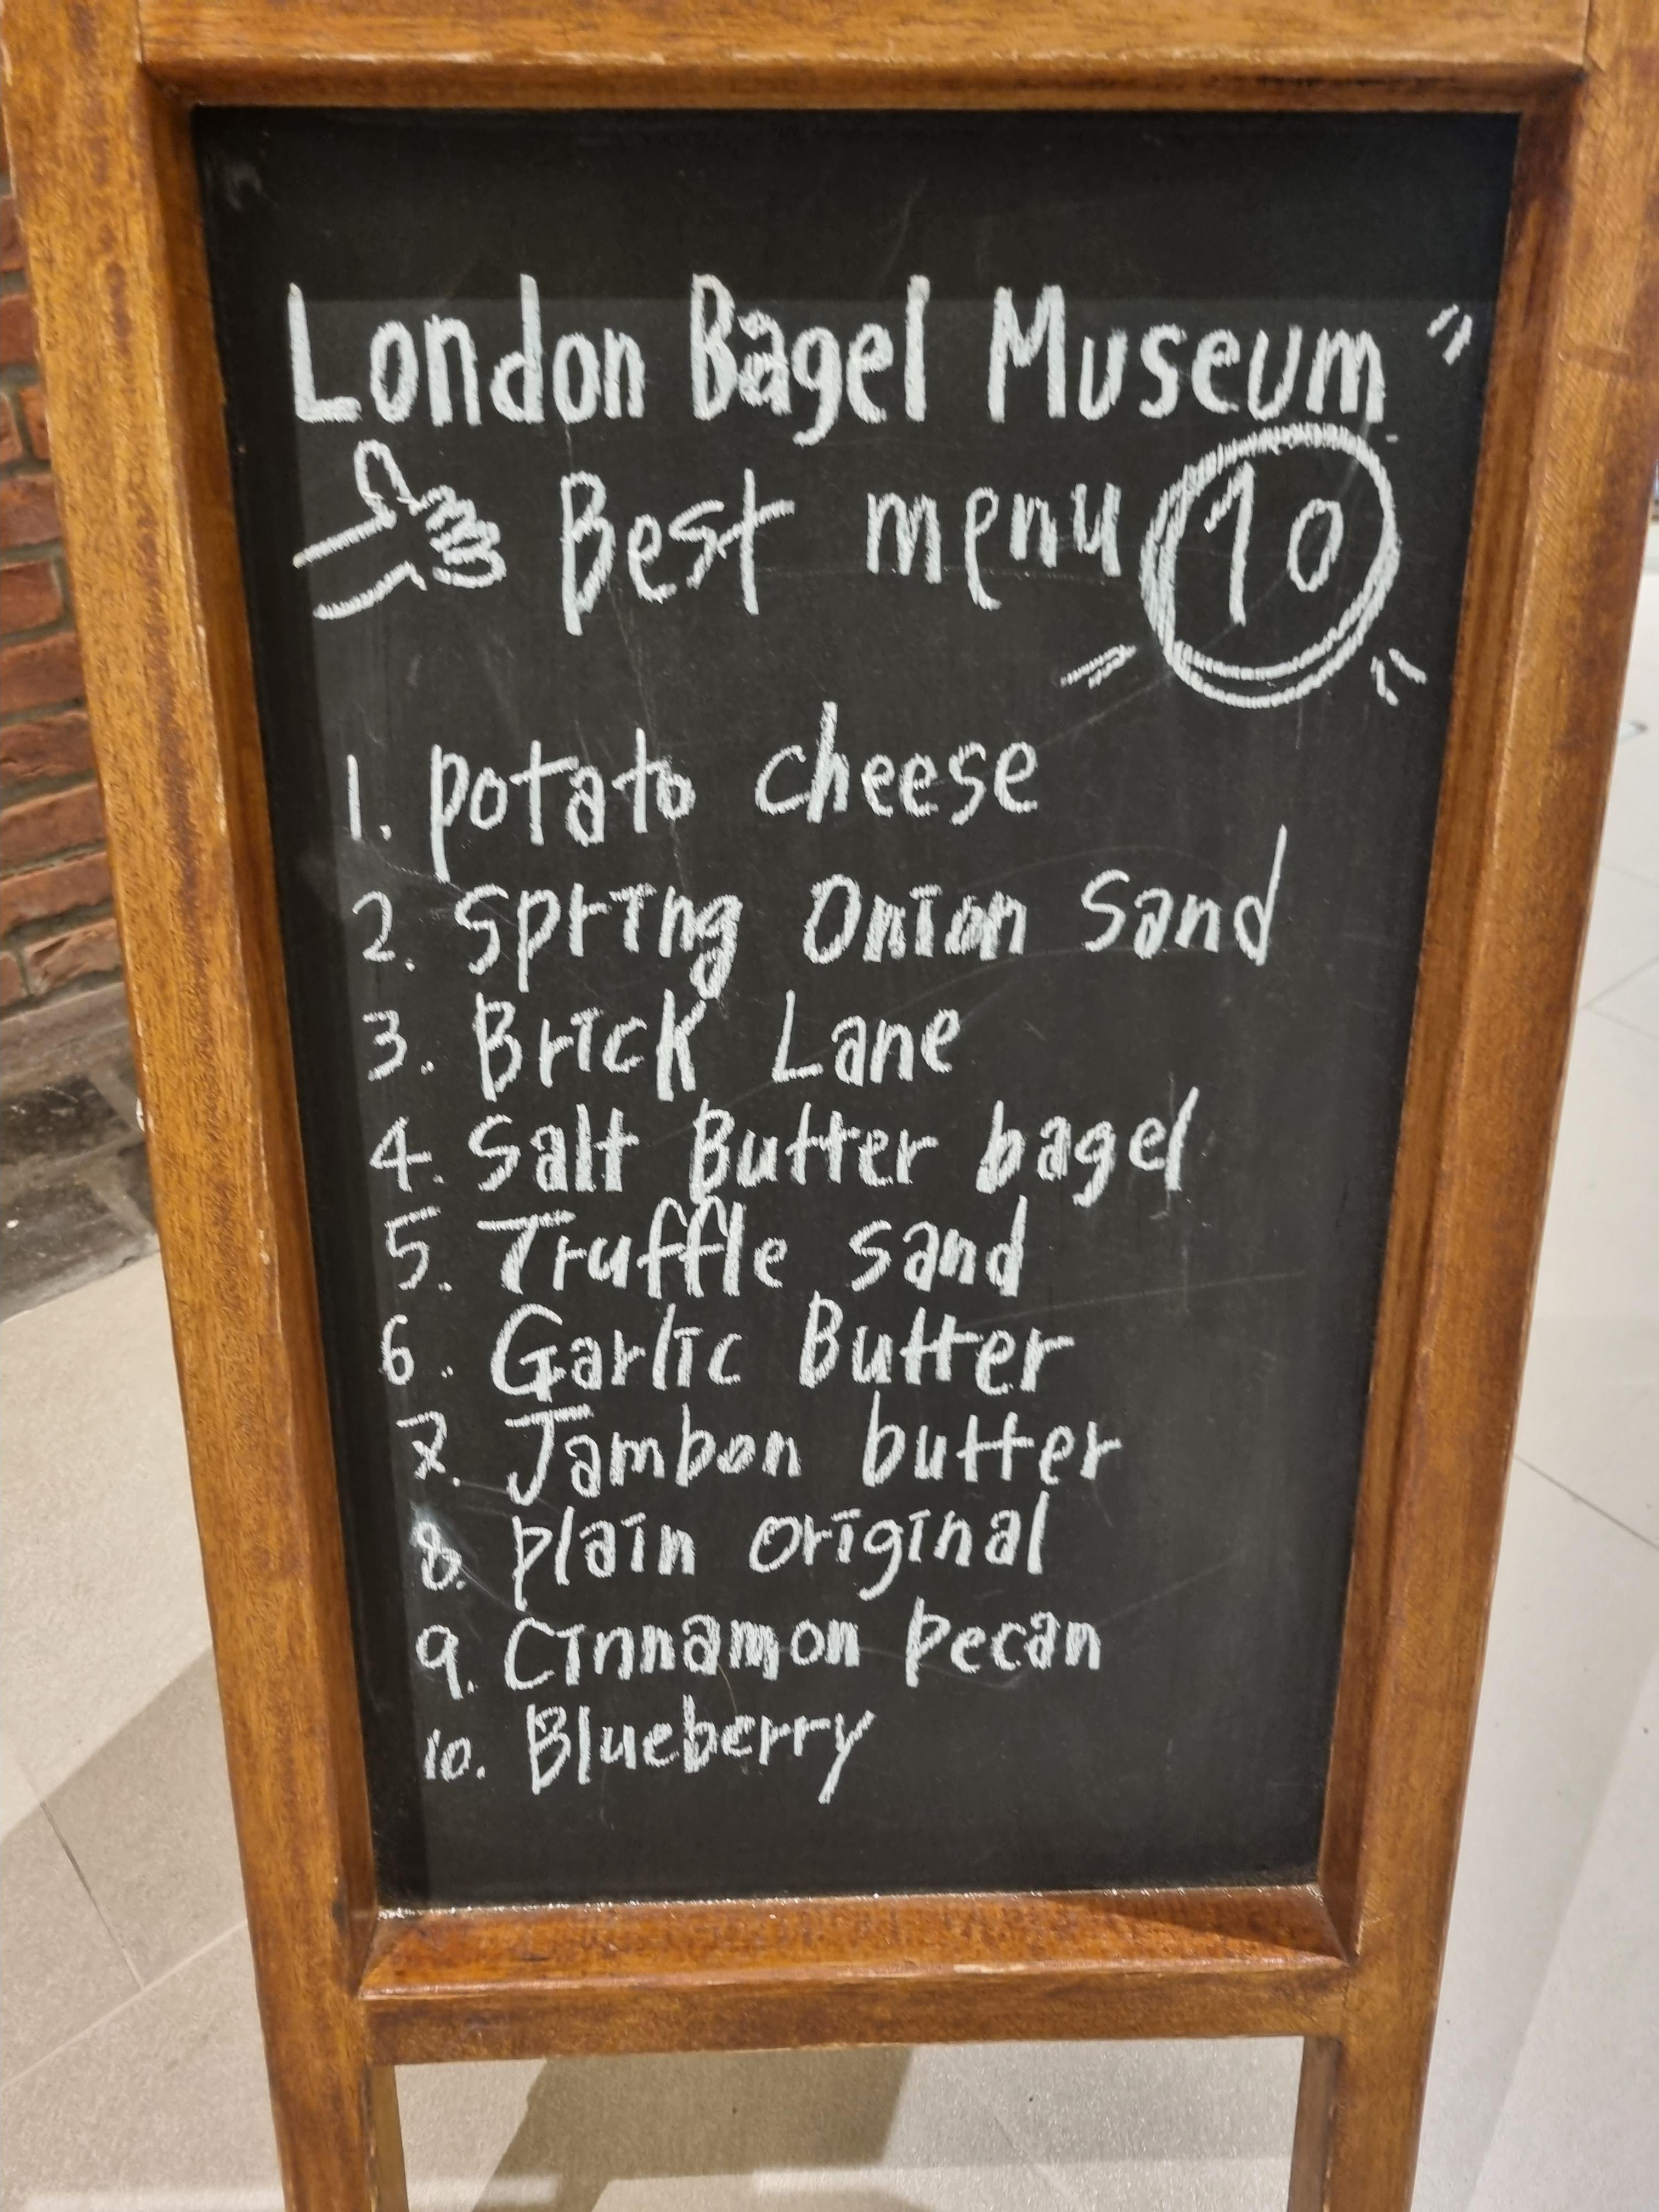 London Bagel Museum
Best menu 10
1. potato cheese
2. Spring Onion Sand
3. Brick Lane
4. Salt Butter bagel
5. Truffle sand
6. Garlic Butter
7. Jambon butter
8. plain original
9. Cinnamon pecan
10. Blueberry